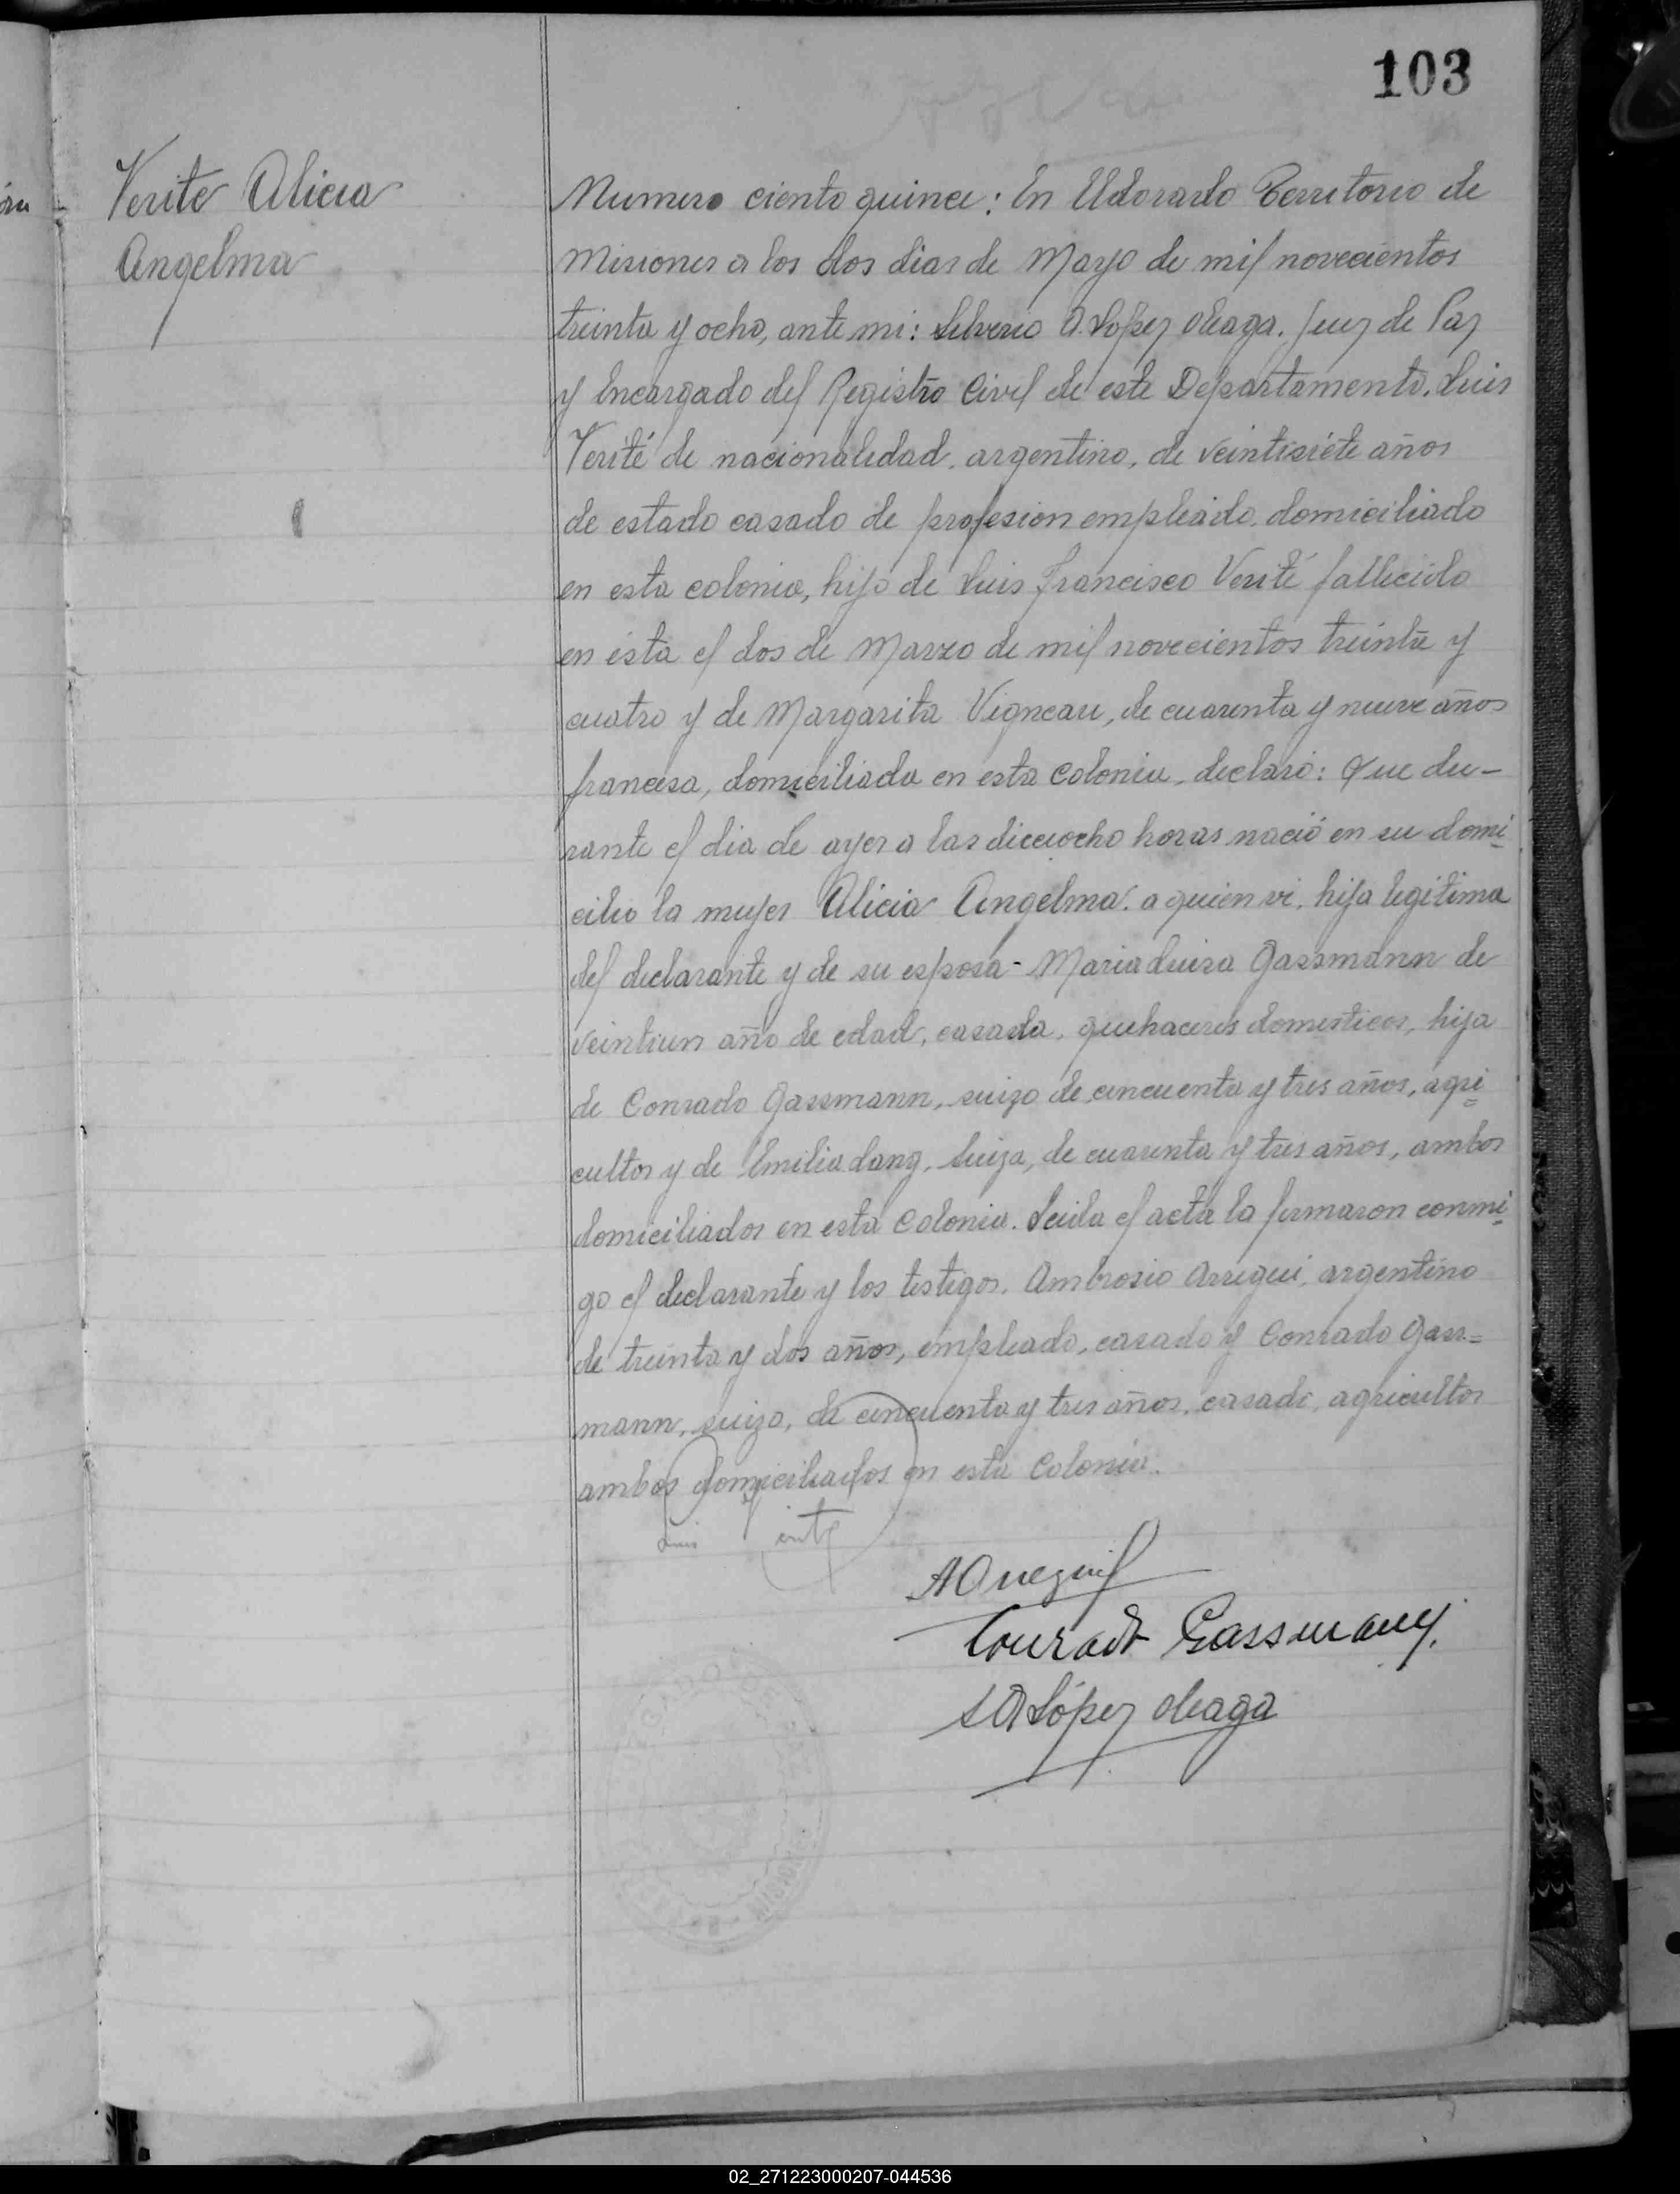 103
Verité Alicia
Angelma
Numero ciento quince: En Eldorado Territorio de
Misiones a los dos dias de Mayo de mil novecientos
treinta y ocho, ante mi: Silverio A. López Oleaga. Juez de Paz
y Encargado del Registro Civil de este Departamento. Luis
Verité de nacionalidad, argentino, de veintisiete años
de estado casado de profesion empleado. domiciliado
en esta colonia, hijo de Luis Francisco Verité fallecido
en ésta el dos de Marzo de mil novecientos treinta y
cuatro y de Margarita Vigneau, de cuarenta y nueve años
francesa, domiciliada en esta colonia, declaró: Que du-
rante el dia de ayer a las dieciocho horas nació en su domi-
cilio la mujer Alicia Angelma. a quien vi, hija legitima
del declarante y de su esposa - Maria Luisa Gassmann de
veintiun año de edad, casada, quehaceres domesticos, hija
de Conrado Gassmann, suizo de cincuenta y tres años, agri=
cultor y de Emilia Lang, Suiza, de cuarenta y tres años, ambos
domiciliados en esta Colonia. Leida el acta la firmaron conmi-
go el declarante y los testigos, Ambrosio Arregui, argentino
de treinta y dos años, empleado, casado y Conrado Gass=
mann, suizo, de cincuenta y tres años, casado, agricultor
ambos domiciliados en esta Colonia.
Luis
A Arregui
Conrado Gassmann
S A López Oleaga
MISIONES
02_271223000207-044536